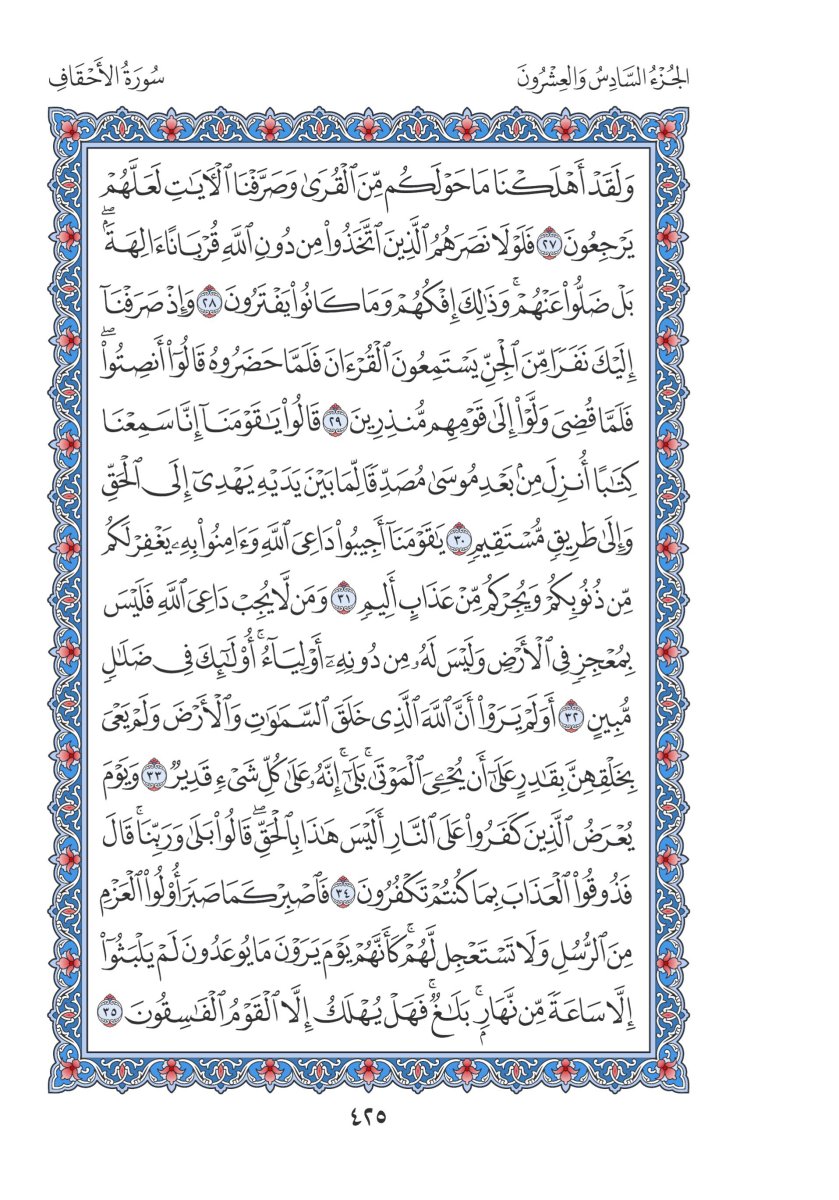 الجُزْءُ السَّادِسُ وَالعِشْرُونَ
سُورَةُ الأَحْقَافِ
وَلَقَدْ أَهْلَكْنَا مَا حَوْلَكُم مِّنَ ٱلْقُرَىٰ وَصَرَّفْنَا ٱلْـَٔايَـٰتِ لَعَلَّهُمْ
يَرْجِعُونَ ٢٧ فَلَوْلَا نَصَرَهُمُ ٱلَّذِينَ ٱتَّخَذُوا۟ مِن دُونِ ٱللَّهِ قُرْبَانًا ءَالِهَةًۢ ۖ
بَلْ ضَلُّوا۟ عَنْهُمْ ۚ وَذَٰلِكَ إِفْكُهُمْ وَمَا كَانُوا۟ يَفْتَرُونَ ٢٨ وَإِذْ صَرَفْنَآ
إِلَيْكَ نَفَرًا مِّنَ ٱلْجِنِّ يَسْتَمِعُونَ ٱلْقُرْءَانَ فَلَمَّا حَضَرُوهُ قَالُوٓا۟ أَنصِتُوا۟ ۖ
فَلَمَّا قُضِىَ وَلَّوْا۟ إِلَىٰ قَوْمِهِم مُّنذِرِينَ ٢٩ قَالُوا۟ يَـٰقَوْمَنَآ إِنَّا سَمِعْنَا
كِتَـٰبًا أُنزِلَ مِنۢ بَعْدِ مُوسَىٰ مُصَدِّقًا لِّمَا بَيْنَ يَدَيْهِ يَهْدِىٓ إِلَى ٱلْحَقِّ
وَإِلَىٰ طَرِيقٍ مُّسْتَقِيمٍ ٣٠ يَـٰقَوْمَنَآ أَجِيبُوا۟ دَاعِىَ ٱللَّهِ وَءَامِنُوا۟ بِهِۦ يَغْفِرْ لَكُم
مِّن ذُنُوبِكُمْ وَيُجِرْكُم مِّنْ عَذَابٍ أَلِيمٍ ٣١ وَمَن لَّا يُجِبْ دَاعِىَ ٱللَّهِ فَلَيْسَ
بِمُعْجِزٍ فِى ٱلْأَرْضِ وَلَيْسَ لَهُۥ مِن دُونِهِۦٓ أَوْلِيَآءُ ۚ أُو۟لَـٰٓئِكَ فِى ضَلَـٰلٍ
مُّبِينٍ ٣٢ أَوَلَمْ يَرَوْا۟ أَنَّ ٱللَّهَ ٱلَّذِى خَلَقَ ٱلسَّمَـٰوَٰتِ وَٱلْأَرْضَ وَلَمْ يَعْىَ
بِخَلْقِهِنَّ بِقَـٰدِرٍ عَلَىٰٓ أَن يُحْـِۧىَ ٱلْمَوْتَىٰ ۚ بَلَىٰٓ ۚ إِنَّهُۥ عَلَىٰ كُلِّ شَىْءٍ قَدِيرٌ ٣٣ وَيَوْمَ
يُعْرَضُ ٱلَّذِينَ كَفَرُوا۟ عَلَى ٱلنَّارِ أَلَيْسَ هَـٰذَا بِٱلْحَقِّ ۖ قَالُوا۟ بَلَىٰ وَرَبِّنَا ۚ قَالَ
فَذُوقُوا۟ ٱلْعَذَابَ بِمَا كُنتُمْ تَكْفُرُونَ ٣٤ فَٱصْبِرْ كَمَا صَبَرَ أُو۟لُوا۟ ٱلْعَزْمِ
مِنَ ٱلرُّسُلِ وَلَا تَسْتَعْجِل لَّهُمْ ۚ كَأَنَّهُمْ يَوْمَ يَرَوْنَ مَا يُوعَدُونَ لَمْ يَلْبَثُوٓا۟
إِلَّا سَاعَةً مِّن نَّهَارٍۭ ۚ بَلَـٰغٌ ۚ فَهَلْ يُهْلَكُ إِلَّا ٱلْقَوْمُ ٱلْفَـٰسِقُونَ ٣٥
٤٢٥